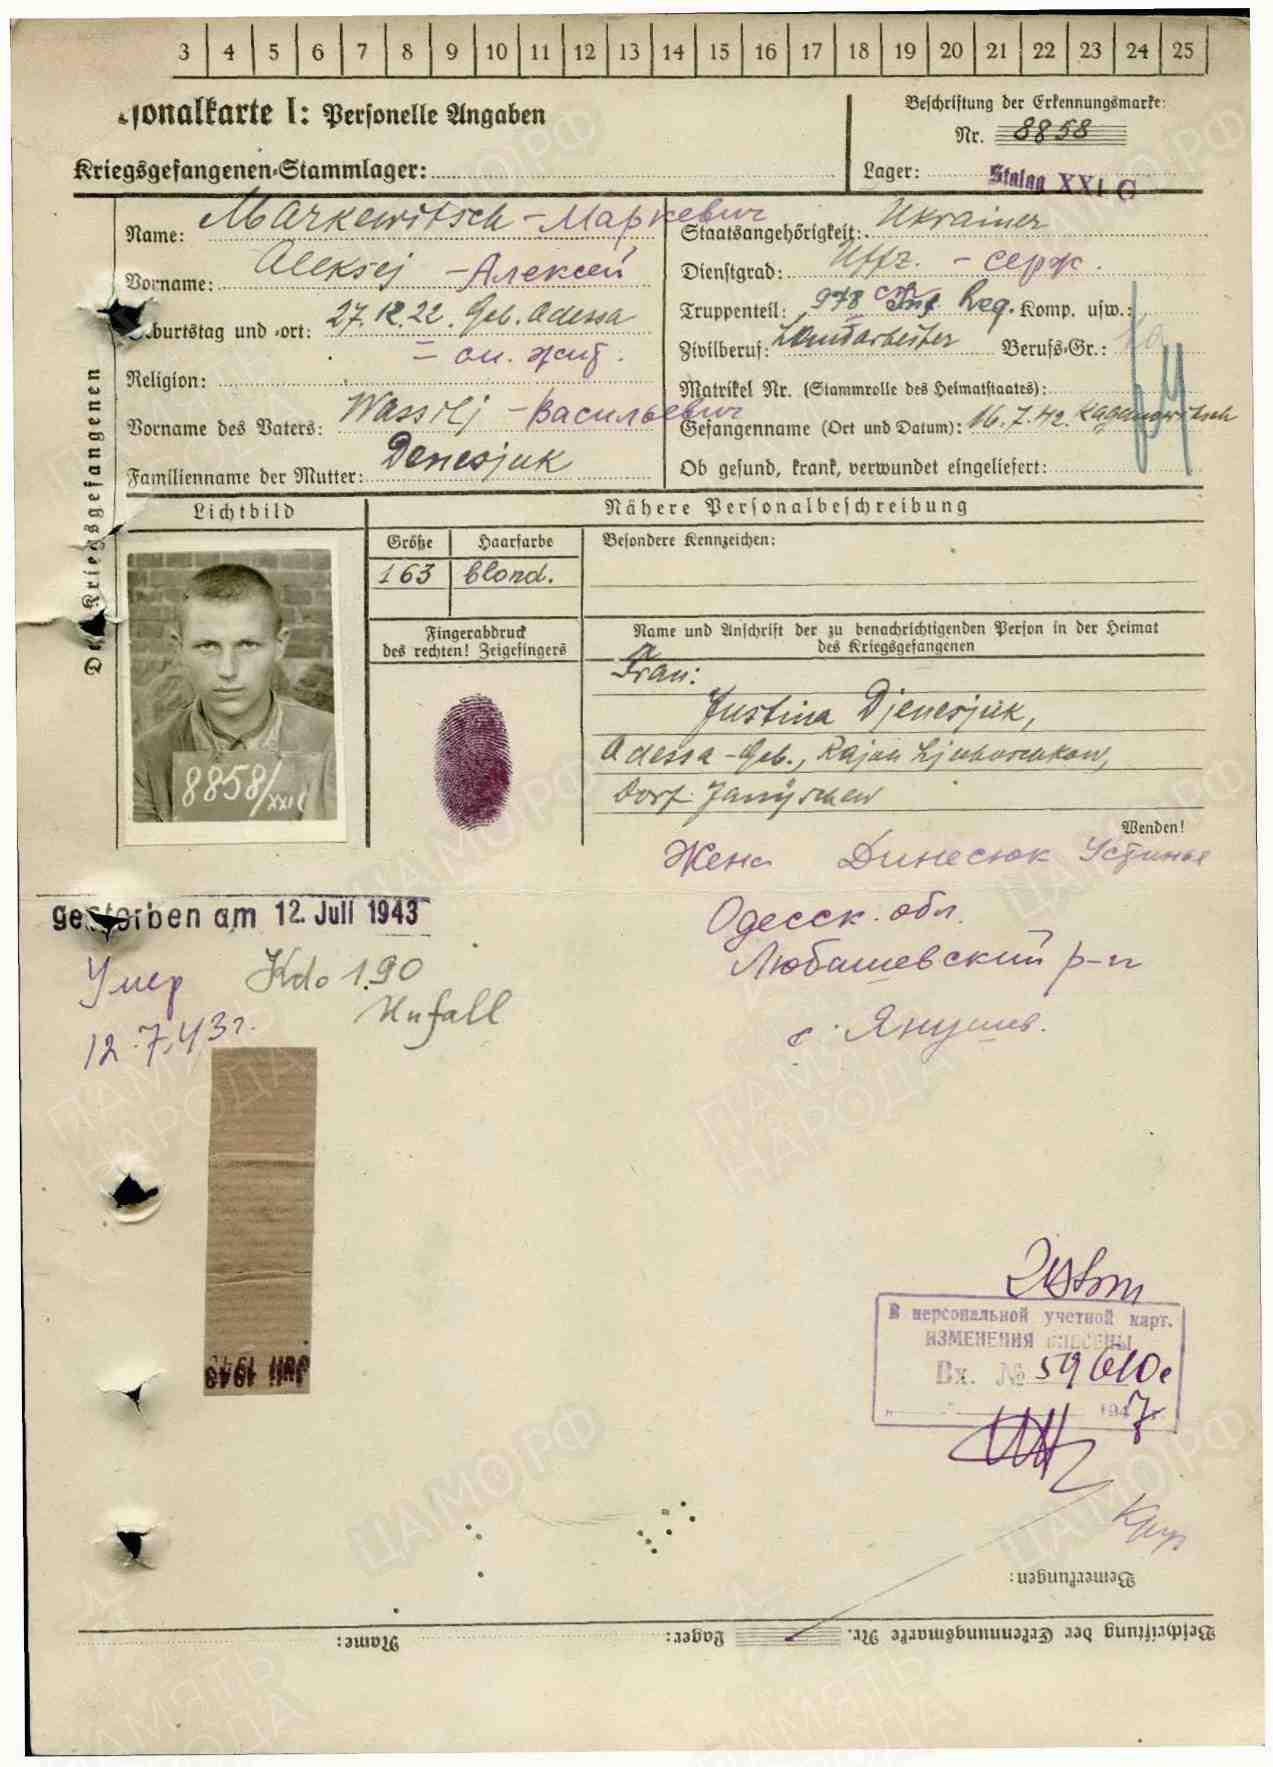 3 4 5 6 7 8 9 10 11 12 13 14 15 16 17 18 19 20 21 22 23 24 25
sonalkarte I: Personelle Angaben
Kriegsgefangenen-Stammlager:
Beschriftung der Erkennungsmarke:
Nr. 8858
Lager: Stalag XXI C
Des Kriegsgefangenen
Name: Markewitsch - Маркевич
Vorname: Aleksej - Алексей
Geburtstag und -ort: 27.12.22. Geb. Adessa
Religion:
Vorname des Vaters: Wassilj - Васильевич
Familienname der Mutter: Denesjuk
Staatsangehörigkeit: Ukrainer
Dienstgrad: Uffz. - серж.
Truppenteil: 978 Inf. Reg. Komp. usw.:
Zivilberuf: Landarbeiter Berufs-Gr.:
Matrikel Nr. (Stammrolle des Heimatstaates):
Gefangenname (Ort und Datum): 16.7.42. Kaganowitsch
Ob gesund, krank, verwundet eingeliefert:
Lichtbild
Nähere Personalbeschreibung
Größe Haarfarbe
163 blond.
Besondere Kennzeichen:
Fingerabdruck
des rechten! Zeigefingers
Name und Anschrift der zu benachrichtigenden Person in der Heimat
des Kriegsgefangenen
Frau:
Justina Djenesjuk,
Adessa - Geb., Rajon
Dorf
8858/XXI C
Wenden!
Жена Динесюк Устинья
Одесск. обл.
Любашевский р-н
с. Янушев.
gestorben am 12. Juli 1943
Умер Kdo 190
Unfall
12.7.43г.
Juli 1943
В персональной учетной карт.
ИЗМЕНЕНИЯ ВНЕСЕНЫ
Вх. № 59610с
1947 г.
Bemerkungen:
Beschriftung der Erkennungsmarke Nr. Lager: Name:
ПАМЯТЬ НАРОДА
ЦАМО.РФ